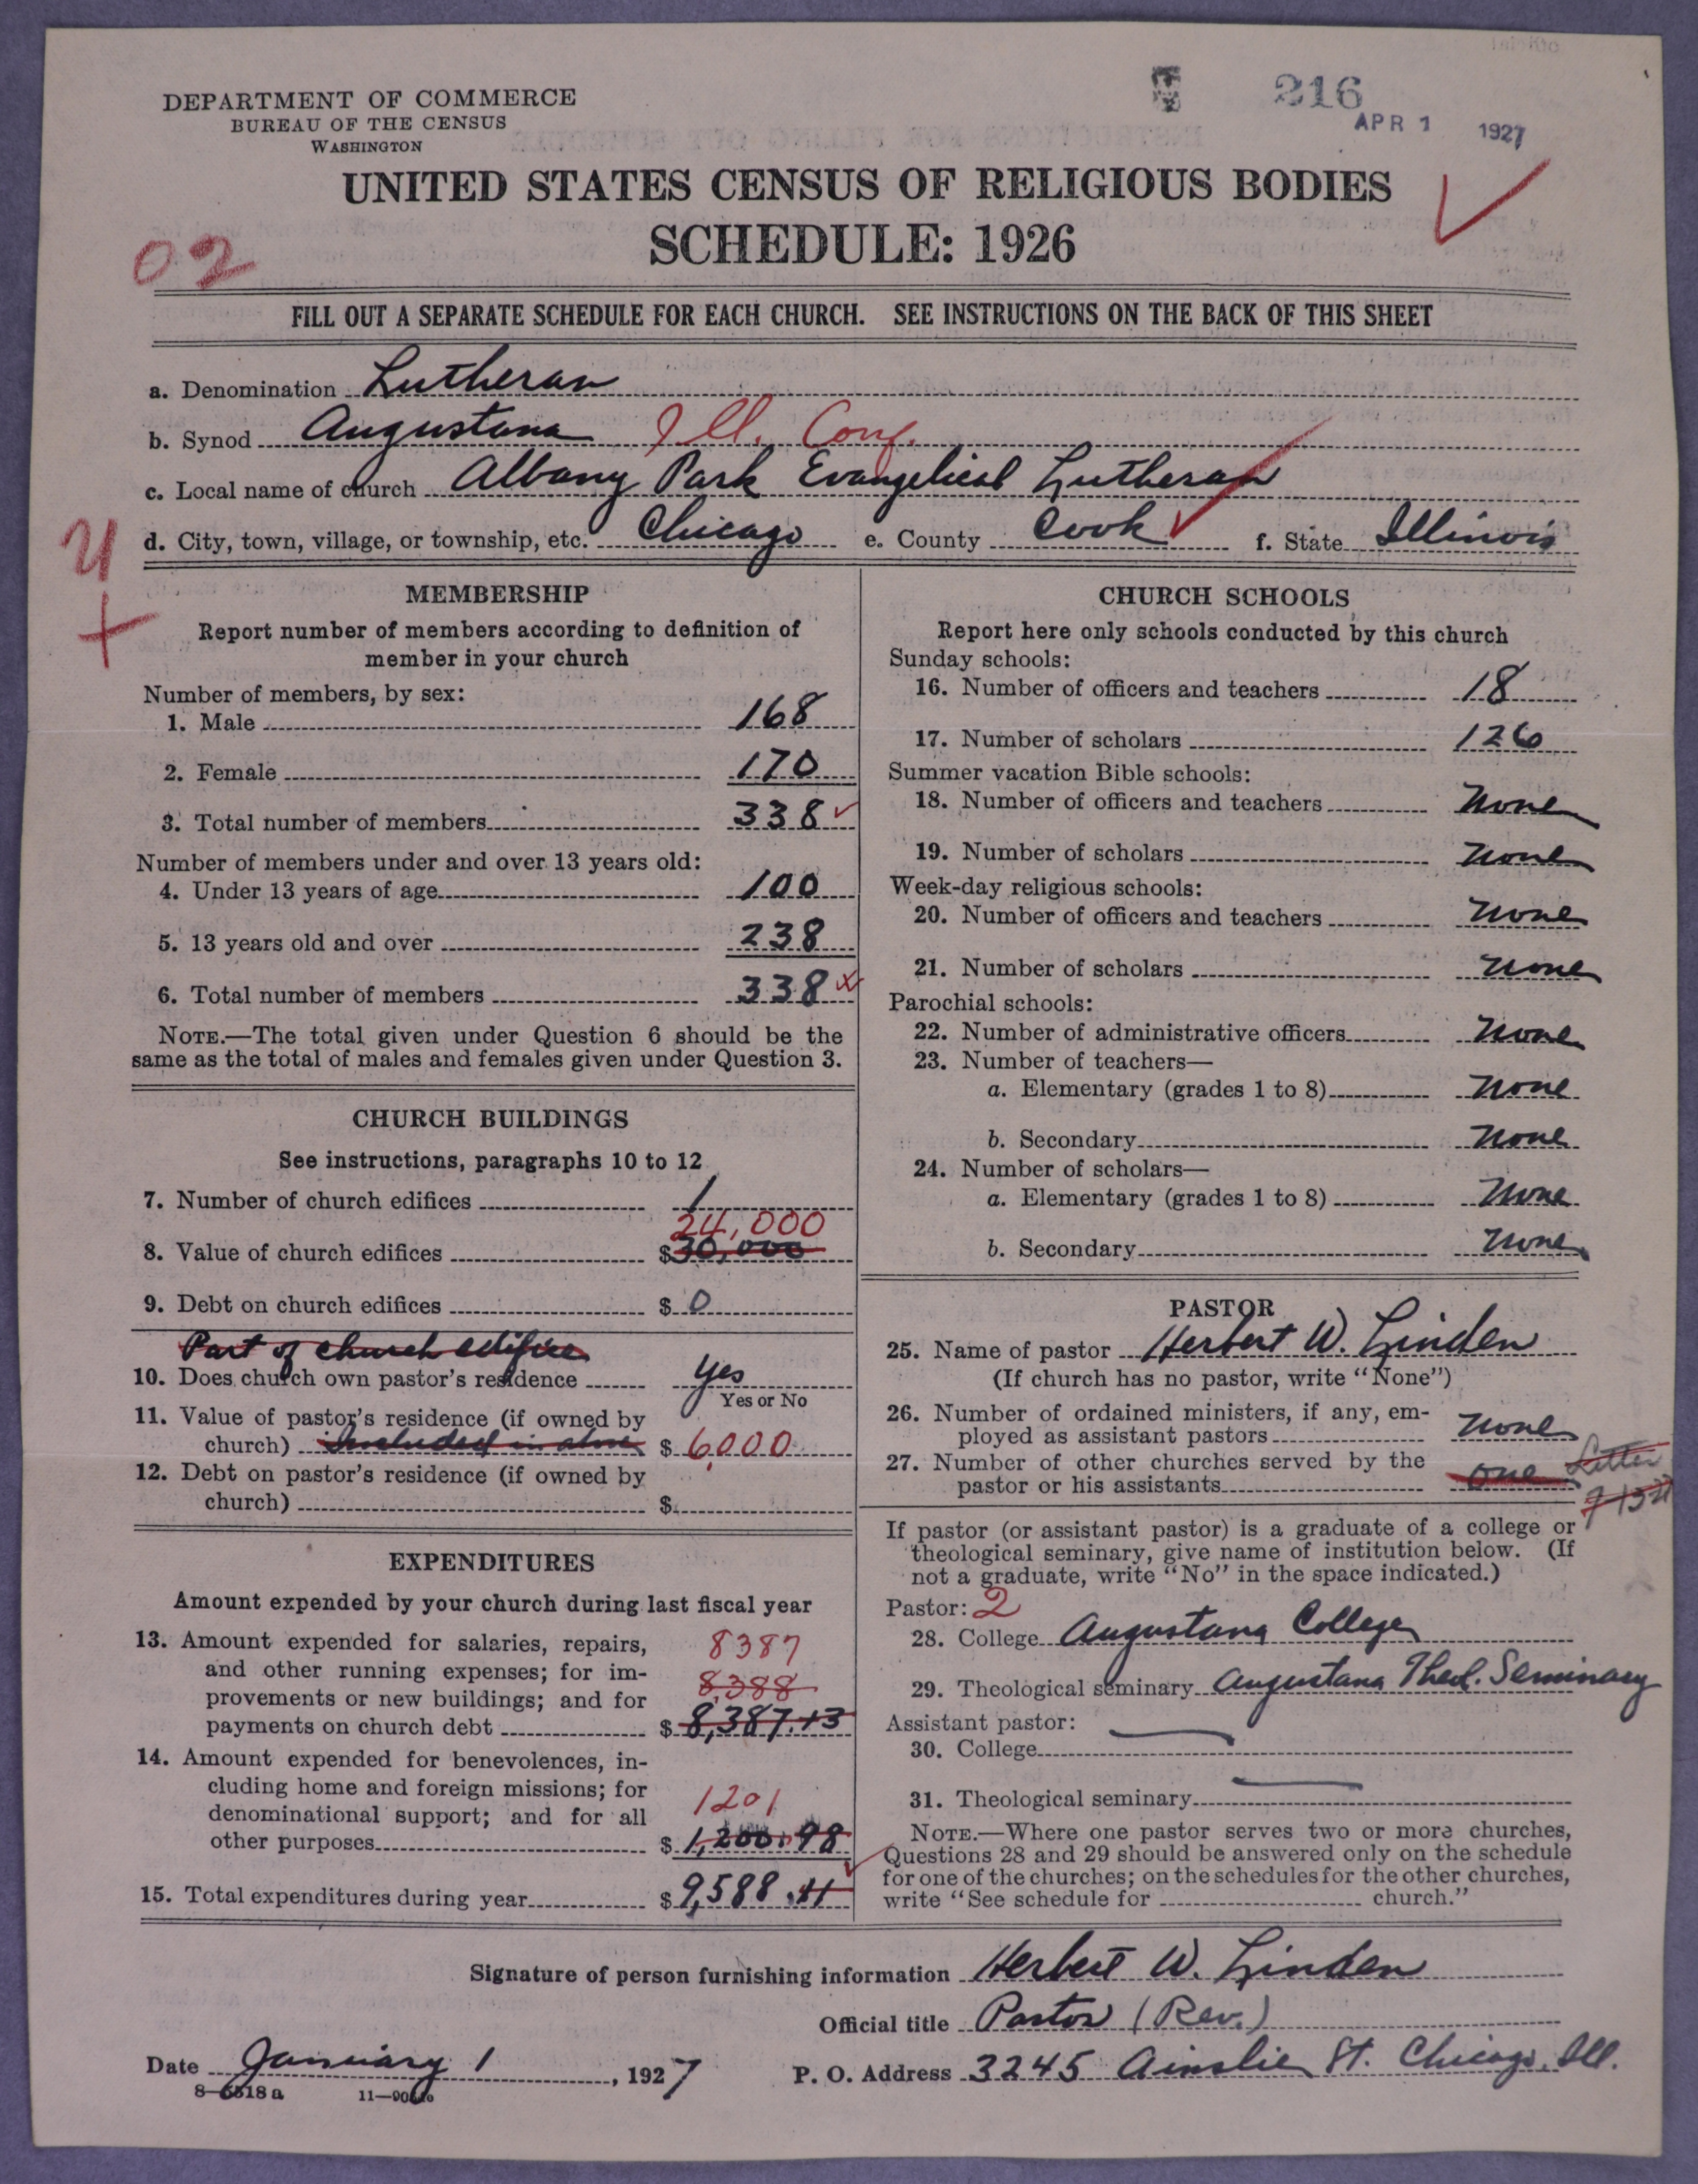 216
APR 1 1927
DEPARTMENT OF COMMERCE
BUREAU OF THE CENSUS
WASHINGTON
UNITED STATES CENSUS OF RELIGIOUS BODIES
SCHEDULE: 1926
02
FILL OUT A SEPARATE SCHEDULE FOR EACH CHURCH. SEE INSTRUCTIONS ON THE BACK OF THIS SHEET
a. Denomination Lutheran
b. Synod Augustana Ill. Conf.
c. Local name of church Albany Park Evangelical Lutheran
d. City, town, village, or township, etc. Chicago e. County Cook f. State Illinois
MEMBERSHIP
Report number of members according to definition of
member in your church
Number of members, by sex:
1. Male 168
2. Female 170
3. Total number of members 338
Number of members under and over 13 years old:
4. Under 13 years of age 100
5. 13 years old and over 238
6. Total number of members 338
NOTE.—The total given under Question 6 should be the
same as the total of males and females given under Question 3.
CHURCH BUILDINGS
See instructions, paragraphs 10 to 12
7. Number of church edifices 1
24,000
8. Value of church edifices $30,000
9. Debt on church edifices $ 0
Part of church edifice
10. Does church own pastor's residence yes
Yes or No
11. Value of pastor's residence (if owned by
church) Included in above $ 6,000
12. Debt on pastor's residence (if owned by
church) $
EXPENDITURES
Amount expended by your church during last fiscal year
13. Amount expended for salaries, repairs, 8387
and other running expenses; for im-
provements or new buildings; and for 8,388
payments on church debt $ 8,387.13
14. Amount expended for benevolences, in-
cluding home and foreign missions; for
denominational support; and for all 1201
other purposes $ 1,200.98
15. Total expenditures during year $ 9,588.11
CHURCH SCHOOLS
Report here only schools conducted by this church
Sunday schools:
16. Number of officers and teachers 18
17. Number of scholars 126
Summer vacation Bible schools:
18. Number of officers and teachers None
19. Number of scholars None
Week-day religious schools:
20. Number of officers and teachers None
21. Number of scholars None
Parochial schools:
22. Number of administrative officers None
23. Number of teachers—
a. Elementary (grades 1 to 8) None
b. Secondary None
24. Number of scholars—
a. Elementary (grades 1 to 8) None
b. Secondary None
PASTOR
25. Name of pastor Herbert W. Linden
(If church has no pastor, write "None")
26. Number of ordained ministers, if any, em-
ployed as assistant pastors None
27. Number of other churches served by the
pastor or his assistants one Letter
If pastor (or assistant pastor) is a graduate of a college or
theological seminary, give name of institution below. (If
not a graduate, write "No" in the space indicated.)
Pastor: 2
28. College Augustana College
29. Theological seminary Augustana Theol. Seminary
Assistant pastor:
30. College
31. Theological seminary
NOTE.—Where one pastor serves two or more churches,
Questions 28 and 29 should be answered only on the schedule
for one of the churches; on the schedules for the other churches,
write "See schedule for church."
Signature of person furnishing information Herbert W. Linden
Official title Pastor (Rev.)
Date January 1, 1927 P. O. Address 3245 Ainslie St. Chicago, Ill.
8—6518a